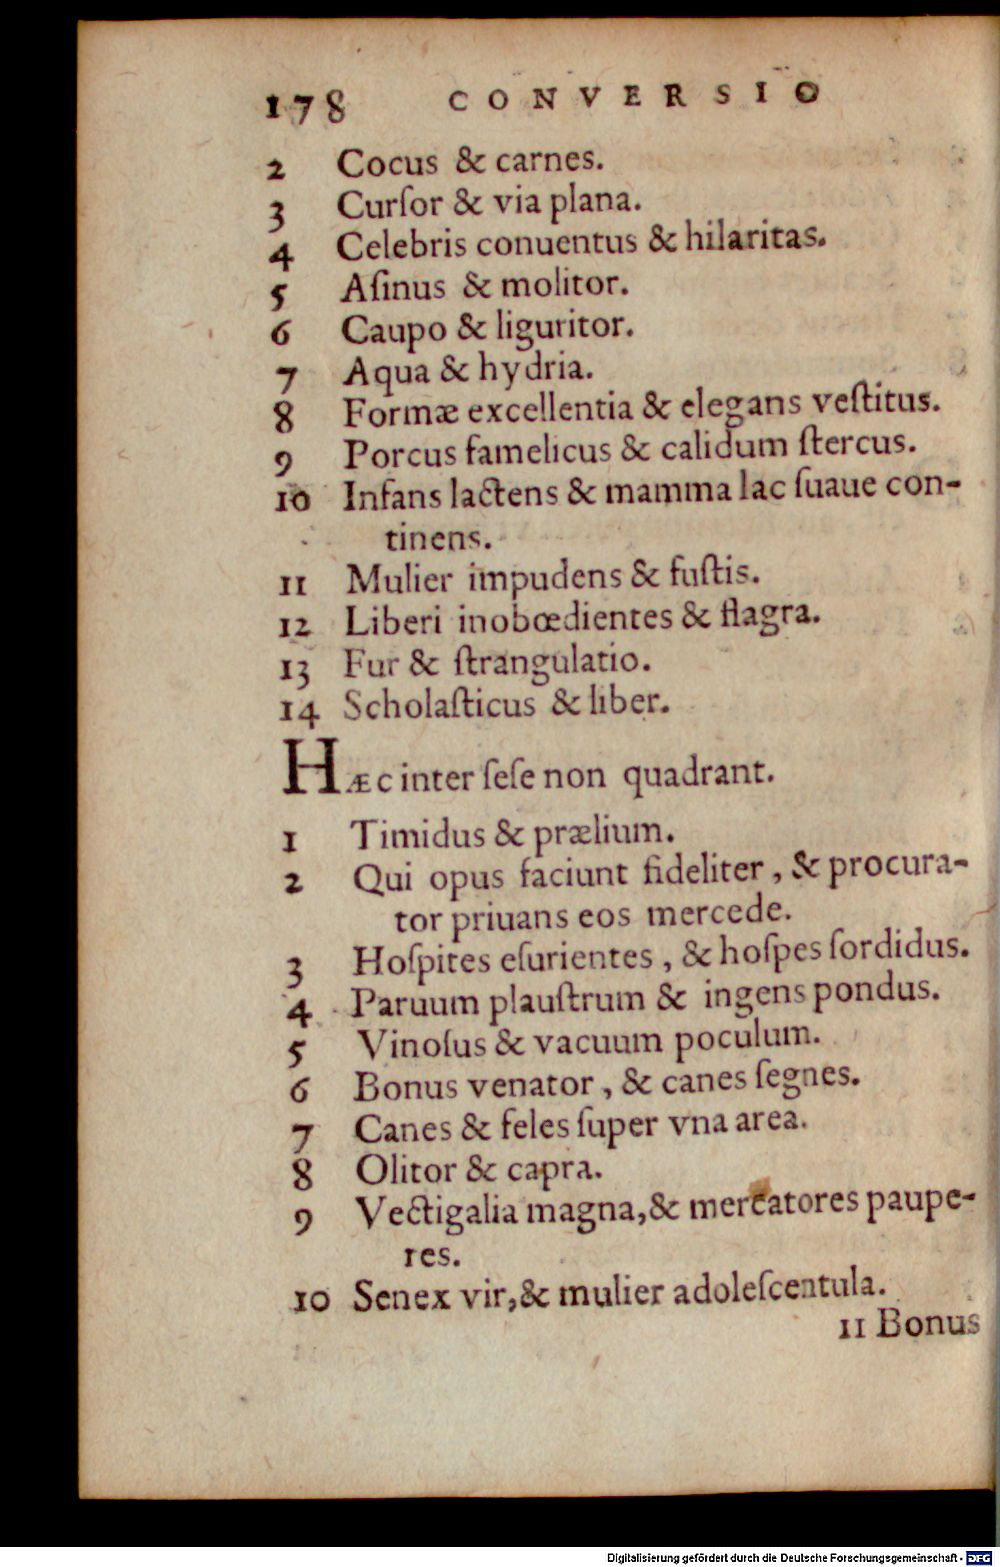 178 CONVERSIO
2 Cocus & carnes.
3 Curſor & via plana.
4 Celebris conuentus & hilaritas.
5 Aſinus & molitor.
6 Caupo & liguritor.
7 Aqua & hydria.
8 Formæ excellentia & elegans veſtitus.
9 Porcus famelicus & calidum ſtercus.
10 Infans lactens & mamma lac ſuaue con-
tinens.
11 Mulier impudens & fuſtis.
12 Liberi inobœdientes & flagra.
13 Fur & ſtrangulatio.
14 Scholaſticus & liber.
HÆc inter ſeſe non quadrant.
1 Timidus & prælium.
2 Qui opus faciunt fideliter, & procura-
tor priuans eos mercede.
3 Hoſpites eſurientes, & hoſpes ſordidus.
4 Paruum plauſtrum & ingens pondus.
5 Vinoſus & vacuum poculum.
6 Bonus venator, & canes ſegnes.
7 Canes & feles ſuper vna area.
8 Olitor & capra.
9 Vectigalia magna,& mercatores paupe-
res.
10 Senex vir,& mulier adoleſcentula.
11 Bonus
Digitalisierung gefördert durch die Deutsche Forschungsgemeinschaft - DFG